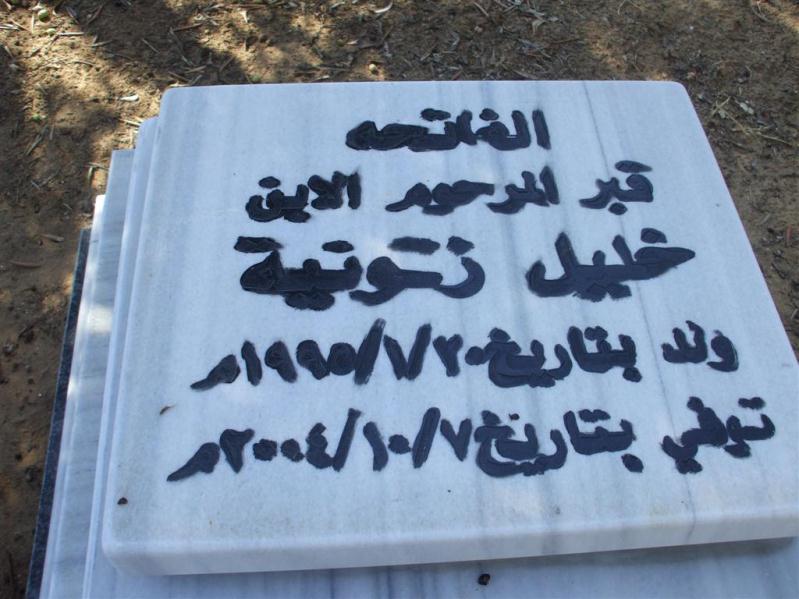 الفاتحه
قبر المرحوم الابن
خليل زتونية
ولد بتاريخ ٢٠/٧/١٩٩٥م
توفي بتاريخ ٧/١٠/٢٠٠٤م